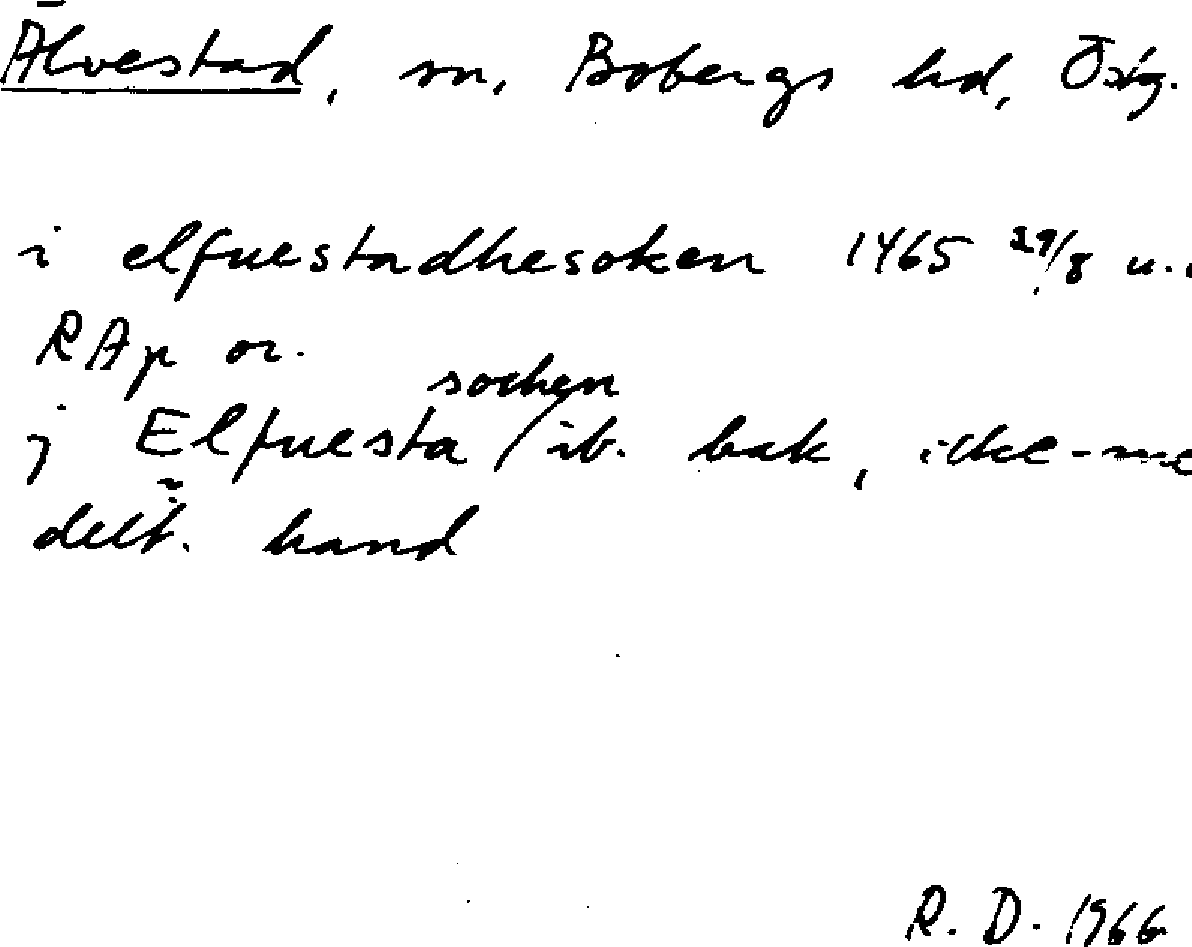 Älvestad, sn, Bobergs hd, Östg.
i elfuestadhesoken 1465 29/8 u.
RAp or.
sochen
j Elfuesta / ib. bak, icke-me
delt. hand
R. D. 1966